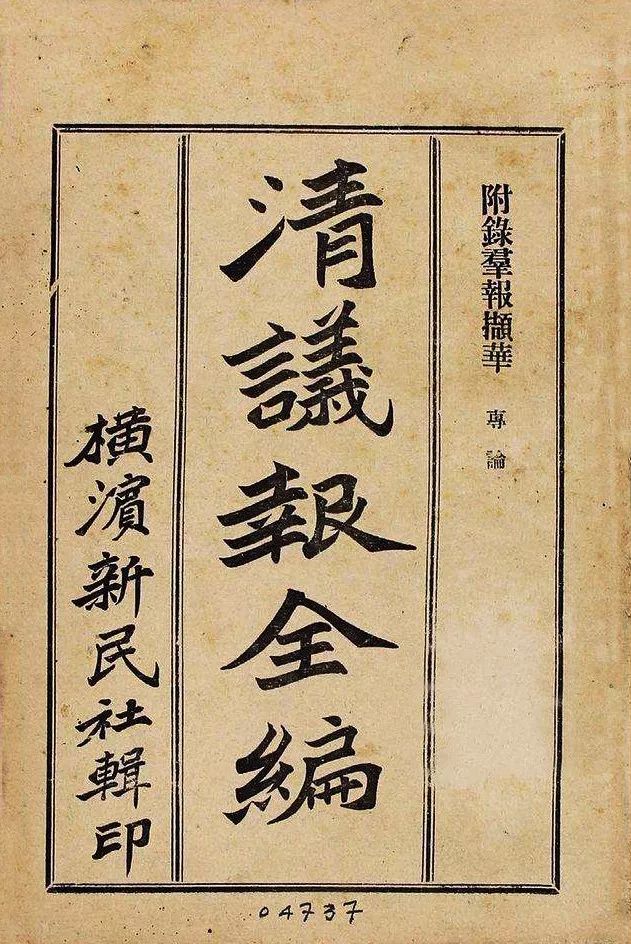 附錄羣報擷華 專論
清議報全編
橫濱新民社輯印
04737